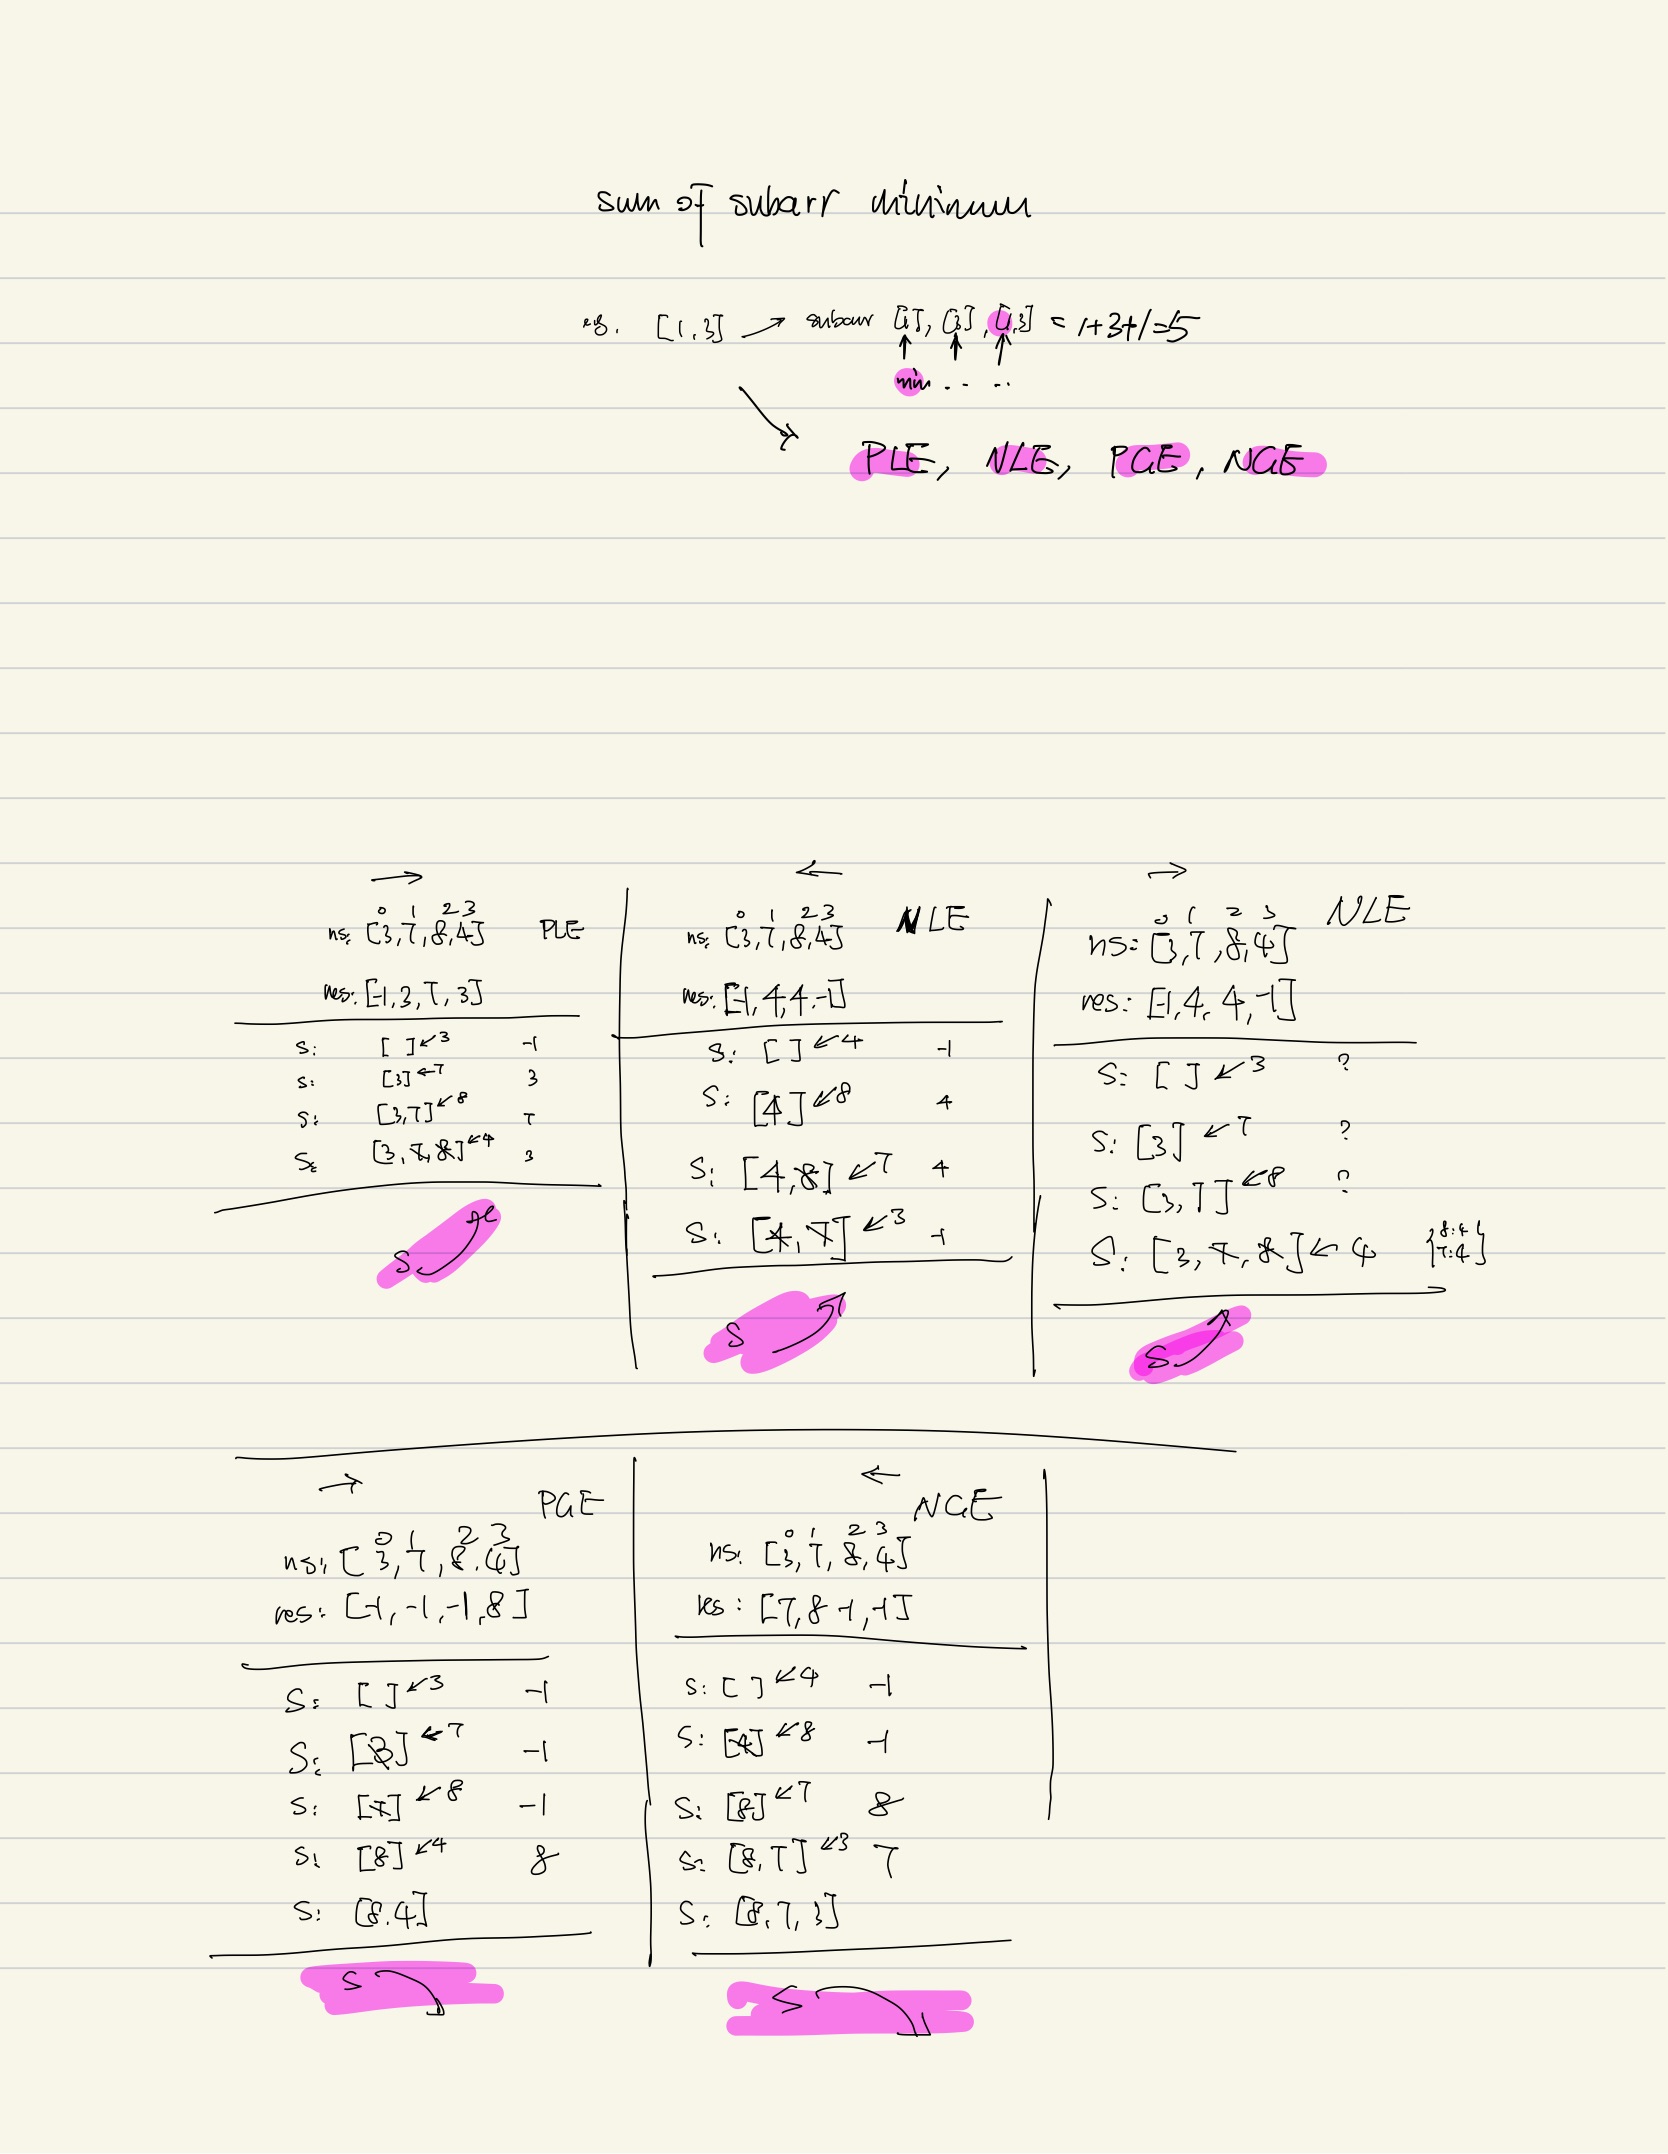 sum of subarr minimum
eg. [1,3] → subarr [1], [3], [1,3] = 1+3+1=5
min .. ..
PLE, NLE, PGE, NGE
→
0 1 2 3
ns: [3,7,8,4] PLE
res: [-1,3,7,3]
s: [ ] ↙3 -1
s: [3] ←7 3
s: [3,7] ↙8 7
s: [3,7,8] ↙4 3
S
←
0 1 2 3
ns: [3,7,8,4] NLE
res: [-1,4,4,-1]
S: [ ] ↙4 -1
S: [4] ↙8 4
S: [4,8] ↙7 4
S: [4,7] ↙3 -1
S
→
0 1 2 3 NLE
ns: [3,7,8,4]
res: [-1,4,4,-1]
S: [ ] ↙3 ?
S: [3] ↙7 ?
S: [3,7] ↙8 ?
S: [3,7,8] ← 4 {8:4
7:4}
S
→
PGE
0 1 2 3
ns: [3,7,8,4]
res: [-1,-1,-1,8]
S: [ ] ↙3 -1
S: [3] ←7 -1
S: [7] ↙8 -1
S: [8] ↙4 8
S: [8,4]
S
←
NGE
0 1 2 3
ns: [3,7,8,4]
res: [7,8 -1,-1]
S: [ ] ↙4 -1
S: [4] ↙8 -1
S: [8] ↙7 8
S: [8,7] ↙3 7
S: [8,7,3]
S